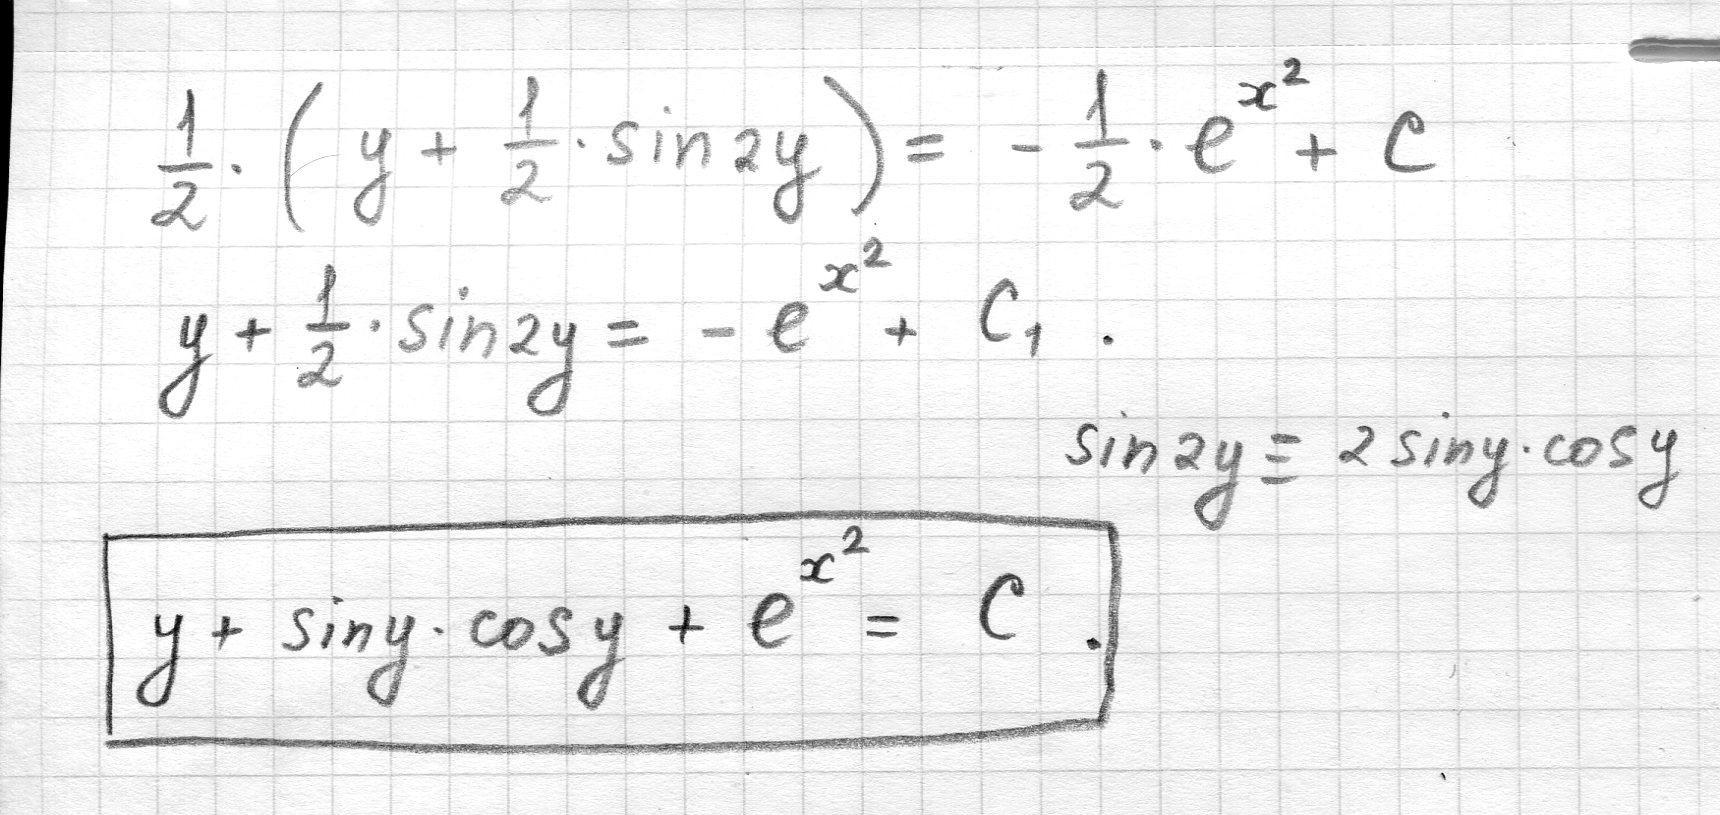 1/2 · (y + 1/2 · sin2y) = - 1/2 · e^x^2 + C
y + 1/2 · sin2y = - e^x^2 + C₁ .
sin2y ≡ 2 siny · cosy
y + siny · cosy + e^x^2 = C .